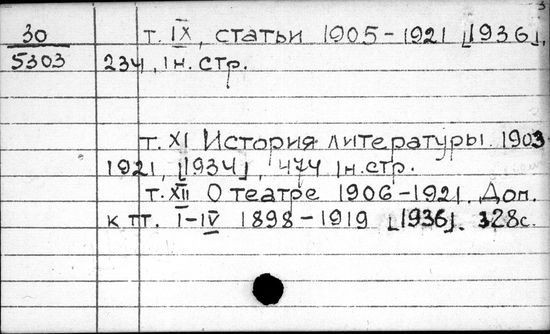 30 т. IX, статьи 1905-1921 [1936],
5303 234, 1н. стр.
т. XI История литературы. 1903-
1921, [1934], 474 1н. стр.
т. XII О театре 1906-1921. Доп.
к тт. I-IV 1898-1919 [1936]. 328с.